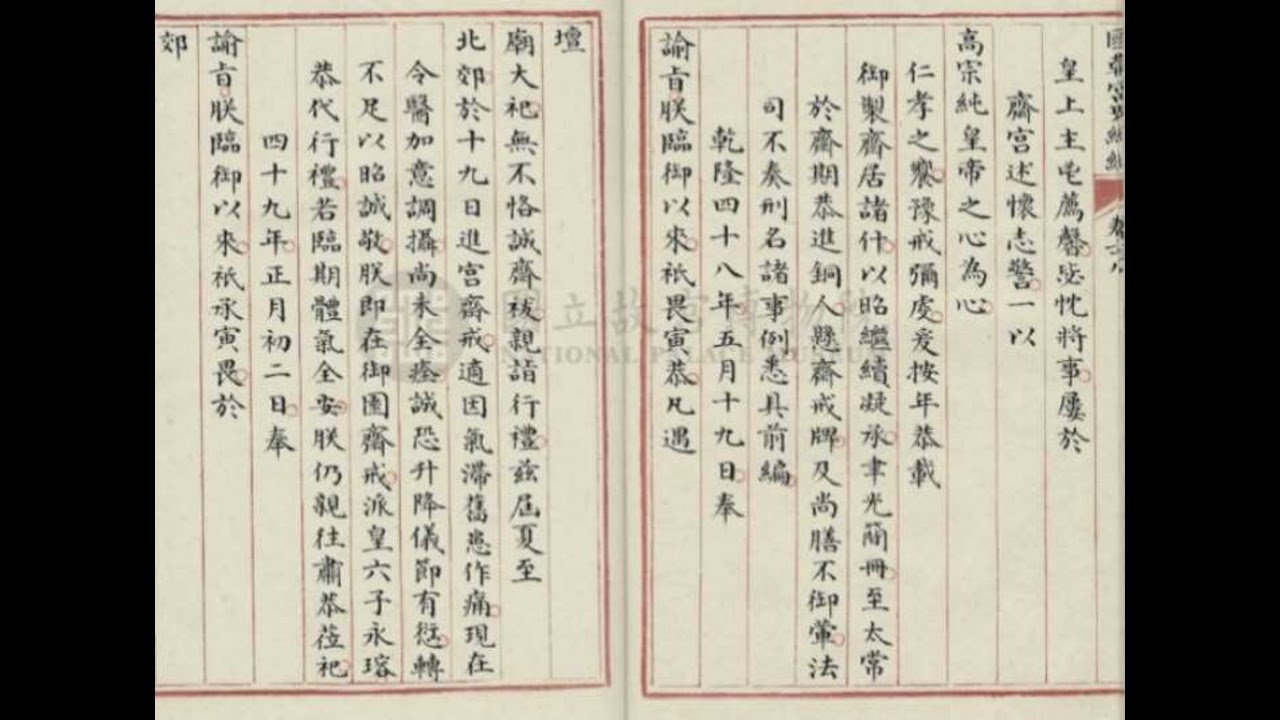 國朝宮史續編 卷
皇上主鬯薦馨毖忱將事屢於
齋宮述懷志警一以
高宗純皇帝之心為心
仁孝之饗豫戒彌虔爰按年恭載
御製齋居諸什以昭繼續凝承聿光簡冊至太常
於齋期恭進銅人懸齋戒牌及尚膳不御葷法
司不奏刑名諸事例悉具前編
乾隆四十八年五月十九日奉
諭旨朕臨御以來祇畏寅恭凡遇
壇
廟大祀無不恪誠齋祓親詣行禮茲屆夏至
北郊於十九日進宮齋戒適因氣滯舊患作痛現在
令醫加意調攝尚未全痊誠恐升降儀節有愆轉
不足以昭誠敬朕即在御園齋戒派皇六子永瑢
恭代行禮若臨期體氣全安朕仍親往肅恭蒞祀
四十九年正月初二日奉
諭旨朕臨御以來祇承寅畏於
郊
國立故宮博物院
NATIONAL PALACE MUSEUM